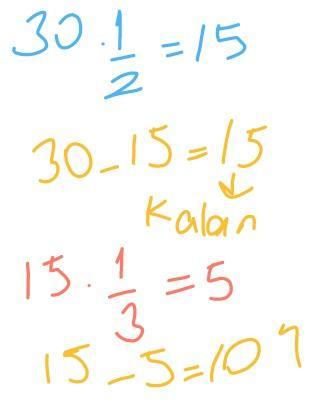 30 · 1/2 = 15
30 - 15 = 15
↓
Kalan
15 · 1/3 = 5
15 - 5 = 10